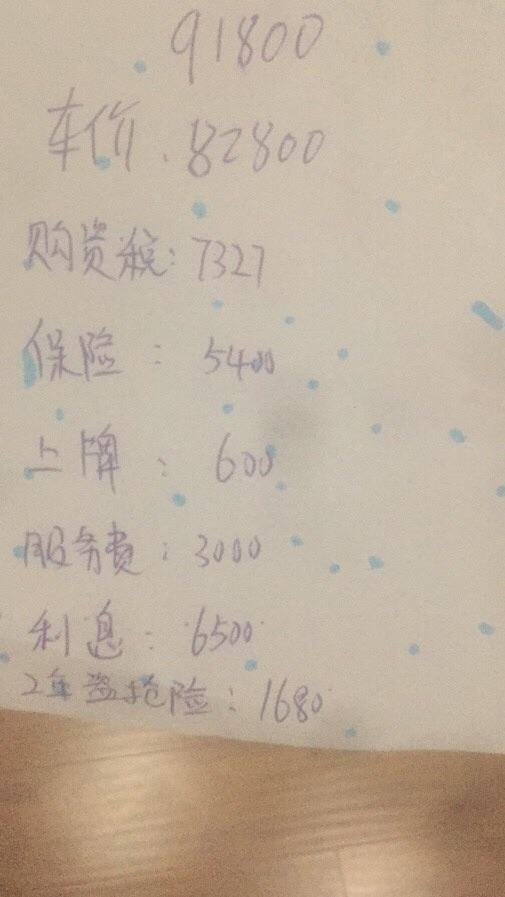 91800
车价.82800
购资税:7327
保险:5400
上牌:600
服务费:3000
利息:6500
2年盗抢险:1680